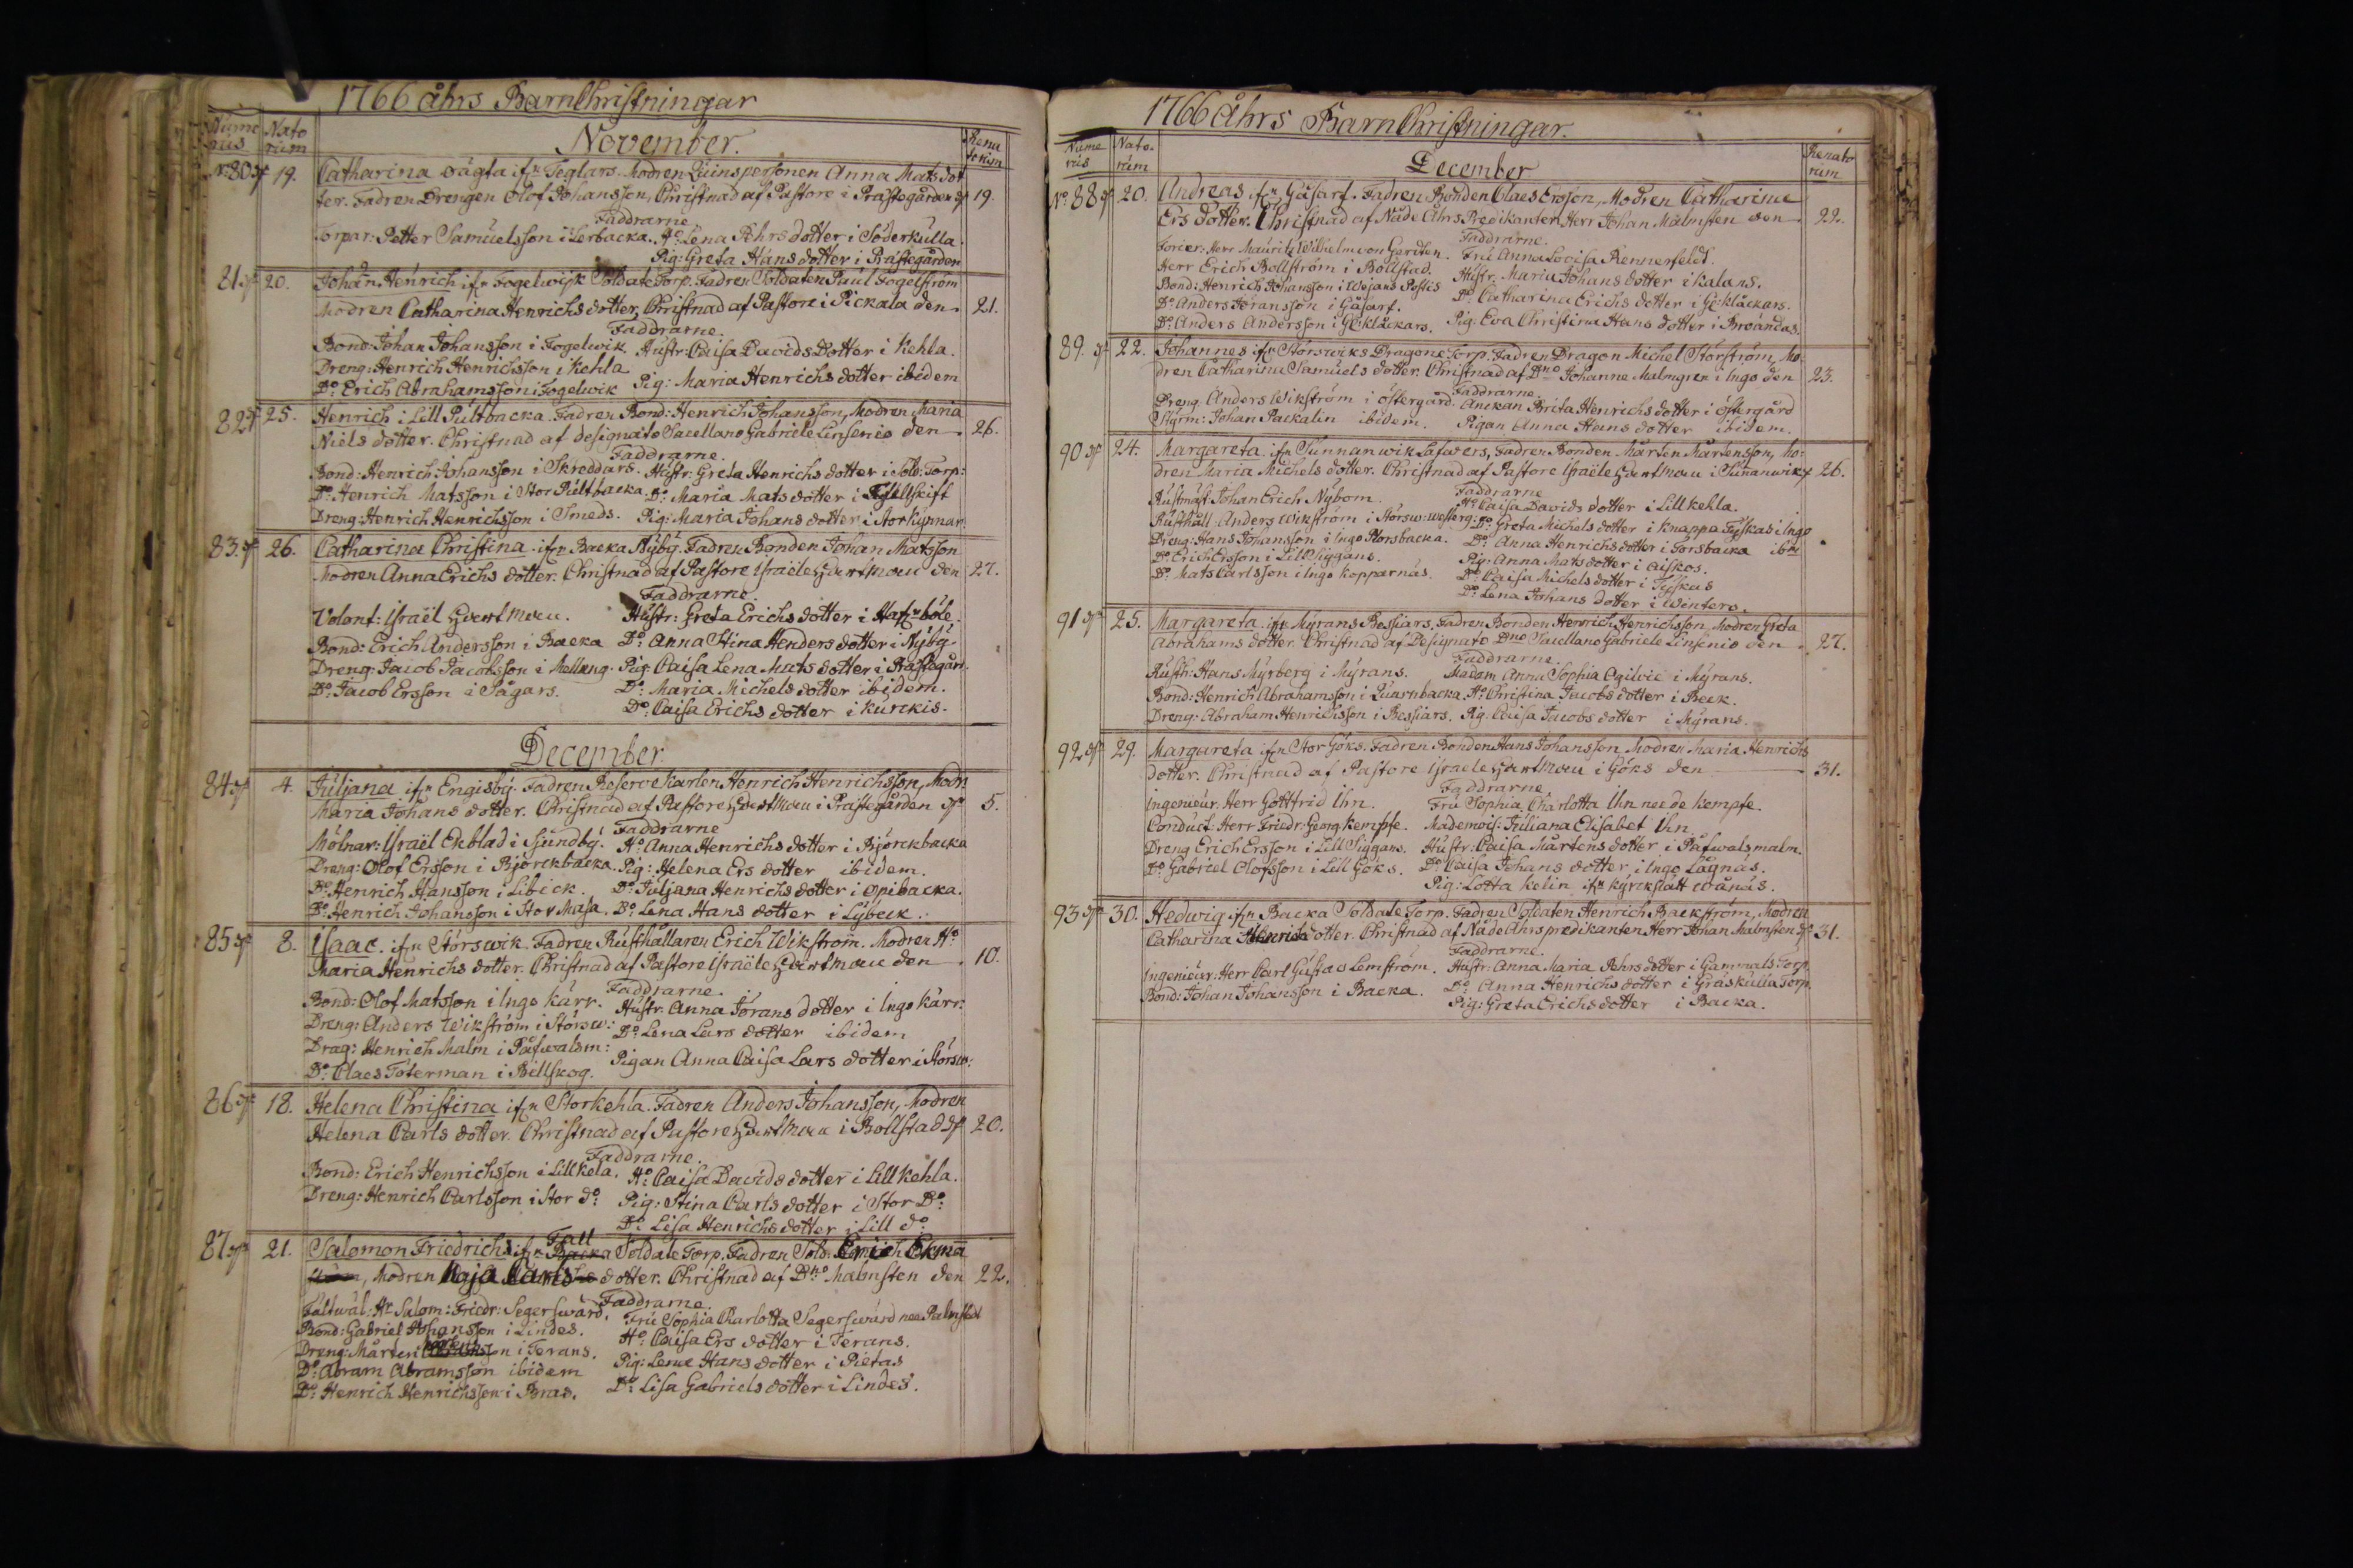 1766 åhrs BarnChristningar
Nume rus Nato rum November. Rena torum
No 80 d. 19. Catharina oägta ifrn Teglars. Modren Qüinspersonen Anna Mats dot
ter. Fadren Drengen Olof Johansson, Christnad af Pastore i Prästegården d. 19.
Faddrarne
Torpar: Petter Samuelsson i Lerbacka. Ho Lena Pehrs dotter i Söderkulla.
Pig: Greta Hans dotter i Prästegården
81 d. 20. Johan Henrich ifrn Fogelwijk Soldate Torp. Fadren Soldaten Paul Fogelström
Modren Catharina Henrichs dotter, Christnad af Pastore i Pickala den. 21.
Faddrarne.
Bond: Johan Johansson i Fogelwik. Hustr: Caisa Davids Dotter i Kehla.
Dreng: Henrich Henrichsson i Kehla
Do Erich Abrahamsson i Fogelwik Pig: Maria Henrichs dotter ibidem
82 d. 25. Henrich i Lill Pultbacka. Fadren Bond: Henrich Johansson, Modren Maria
Niels dotter. Christnad af designato Sacellano Gabriele Linsenio den. 26.
Faddrarne.
Bond: Henrich Johansson i Skreddars. Hustr: Greta Henrichs dotter i Sold: Torp:
Do Henrich Matsson i Stor Pultbacka. Do Maria Mats dotter i
Dreng: Henrich Henrichsson i Smeds. Pig: Maria Johans dotter i Storkynnar
83. d. 26. Catharina Christina. ifrn Backa Nyby. Fadren Bonden Johan Matsson
Modren Anna Erichs dotter. Christnad af Pastore Israële Hartman den 27.
Faddrarne.
Volont: Israël Hartman. Hustr: Greta Erichs dotter i
Bond: Erich Andersson i Backa Do Anna Stina Henders dotter i Nyby.
Dreng: Jacob Jacobsson i Mellang. Pig: Caisa Lena Mats dotter i Prästegår:
Do Jacob Ersson i Sågars. Do Maria Michels dotter ibidem.
Do Caisa Erichs dotter i Kurckis.
December.
84 d. 4. Juljana ifrn Engisby. Fadren Reserve Karlen Henrich Henrichsson, Modr.
Maria Johans dotter. Christnad af Pastore Hartman i Prästegården d. 5.
Faddrarne
Mölnar: Israël Ekblad i Sjundby. Ho Anna Henrichs dotter i Björckbacka
Dreng: Olof Ersson i Björckbacka. Pig: Helena Ers dotter ibidem.
Do Henrich Hansson i Libeck. Do Juljana Henrichs dotter i Opibacka.
Do Henrich Johansson i Stor Masa. Do Lena Hans dotter i Lybeck.
85 d. 8. Isaac. ifrn Störswik. Fadren Rusthållaren Erich Wikström. Modren Ho
Maria Henrichs dotter. Christnad af Pastore Israële Hartman den. 10.
Faddrarne.
Bond: Olof Matsson i Ingo Kärr. Hustr: Anna Jörans dotter i Ingo Kärr:
Dreng: Anders Wikström i Störsw: Do Lena Lars dotter ibidem
Drag: Henrich Malm i Påfwalsm:
Do Claes Toterman i Billskog. Pigan Anna Caisa Lars dotter i Störsw:
86 d. 18. Helena Christina ifrn Storkehla. Fadren Anders Johansson, Modren
Helena Carls dotter. Christnad af Pastore Hartman i Bollstad d. 20.
Faddrarne.
Bond: Erich Henrichsson i Lillkela. Ho Caisa Davids dotter i Lillkehla.
Dreng: Henrich Carlsson i Stor do: Pig: Stina Carls dotter i Stor Do:
Do Lisa Henrichs dotter i Lill do:
Fall
87 d. 21. Salomon Friedrichs ifrn Backa Soldate Torp. Fadren Sold: Erich Ekmā
, Modren Maja Carls dotter. Christnad af Dno Malmsten den 22.
Faddrarne.
Fältwäl: Hr Salom: Friedr: Segerswärd. Fru Sophia Charlotta Segerswärd nee Palmstedt
Bond: Gabriel Johansson i Lindes. Ho Caisa Ers dotter i Terans.
Dreng: Mårten i Terans. Pig: Lena Hans dotter i Pietas
Do Abram Abramsson ibidem
Do Henrich Henrichsson i Bras. Do Lisa Gabriels dotter i Lindes.
1766 Åhrs BarnChristningar.
Nume rus Nato- rum December Renato rum
No 88 d. 20. Andreas ifrn Gåsarf. Fadren Bonden Claes Ersson, Modren Catharina
Ers dotter. Christnad af Nåde Åhrs Predikanten Herr Johan Malmsten den 22.
Faddrarne.
Forier: Herr Mauritz Wilhelm von Gerdten. Fru Anna Lovisa Rennerfeldt.
Herr Erich Bollström i Bollstad. Hustr: Maria Johans dotter i Kalans.
Bond: Henrich Johansson i Wejans Do Catharina Erichs dotter i G:klåckars.
Do Anders Göransson i Gåsarf.
Do Anders Andersson i G:klåckars. Pig: Eva Christina Hans dotter i Broändas.
89. d. 22. Johannes ifrn Störswiks Dragone Torp. Fadren Dragon Michel Störström, Mo-
dren Catharina Samuels dotter. Christnad af Dno Johanne Malmgren i Ingo den 23.
Faddrarne.
Dreng. Anders Wikström i Östergård. Änckan Brita Henrichs dotter i Östergård
Styrm: Johan Packalin ibidem. Pigan Anna Hans dotter ibidem.
90 d. 24. Margareta ifrn Sunnanwik Fadren Bonden Mårten Mårtensson, Mo-
dren Maria Michels dotter. Christnad af Pastore Israële Hartman i Sunanwik d. 26.
Faddrarne
Rustmäst: Johan Erich Nybom. Ho Caisa Davids dotter i Lillkehla.
Rusthåll: Anders Wikström i Störsw: westerg: Do Greta Michels dotter i Knappa Tyskas i Ingo
Dreng: Hans Johansson i Ingo Do Anna Henrichs dotter i Torsbacka ibm
Do Erich Ersson i Lill Siggans. Pig: Anna Mats dotter i
Do Mats Carlsson i Ingo Kopparnäs. Do Caisa Michels dotter i Tyskas
Do Lena Johans dotter i Winters.
91 d. 25. Margareta ifrn Myrans Fadren Bonden Henrich Henrichsson, Modren Greta
Abrahams dotter. Christnad af Designato Dno Sacellano Gabriele Linsenio den. 27.
Faddrarne.
Rusth: Hans Myrberg i Myrans. Madam Anna Sophia Ogilvie i Myrans.
Bond: Henrich Abrahamsson i Quarnbacka. Ho Christina Jacobs dotter i Beck.
Dreng: Abraham Henrichsson i Pig. Caisa Jacobs dotter i Myrans.
92 d. 29. Margareta ifrn Stor Göks. Fadren Bonden Hans Johansson, Modren Maria Henrichs
dotter. Christnad af Pastore Israële Hartman i Göks den 31.
Faddrarne.
Ingenieur: Herr Gottfrid Ihn. Fru Sophia Charlotta Ihn nee de Kempfe.
Conduct: Herr Friedr: Georg Kempfe. Mademois: Juliana Elisabet Ihn.
Dreng Erich Ersson i Lill Siggans. Hustr: Caisa Mårtens dotter i Påfwalsmalm.
Do Gabriel Olofsson i Lill Göks. Do Caisa Johans dotter i Ingo Lågnäs.
Pig: Lotta Kelin ifrn Kyrckslätt
93 d. 30. Hedwig ifrn Backa Soldate Torp. Fadren Soldaten Henrich Backström, Modren
Catharina Henrichs dotter. Christnad af Nåde Åhrs predikanten Herr Johan Malmsten d. 31.
Faddrarne.
Ingenieur: Herr Carl Gustav Lemström. Hustr: Anna Maria Pehrs dotter i Gammals Torp.
Bond: Johan Johansson i Backa. Do Anna Henrichs dotter i Gräskulla Torp.
Pig: Greta Erichs dotter i Backa.